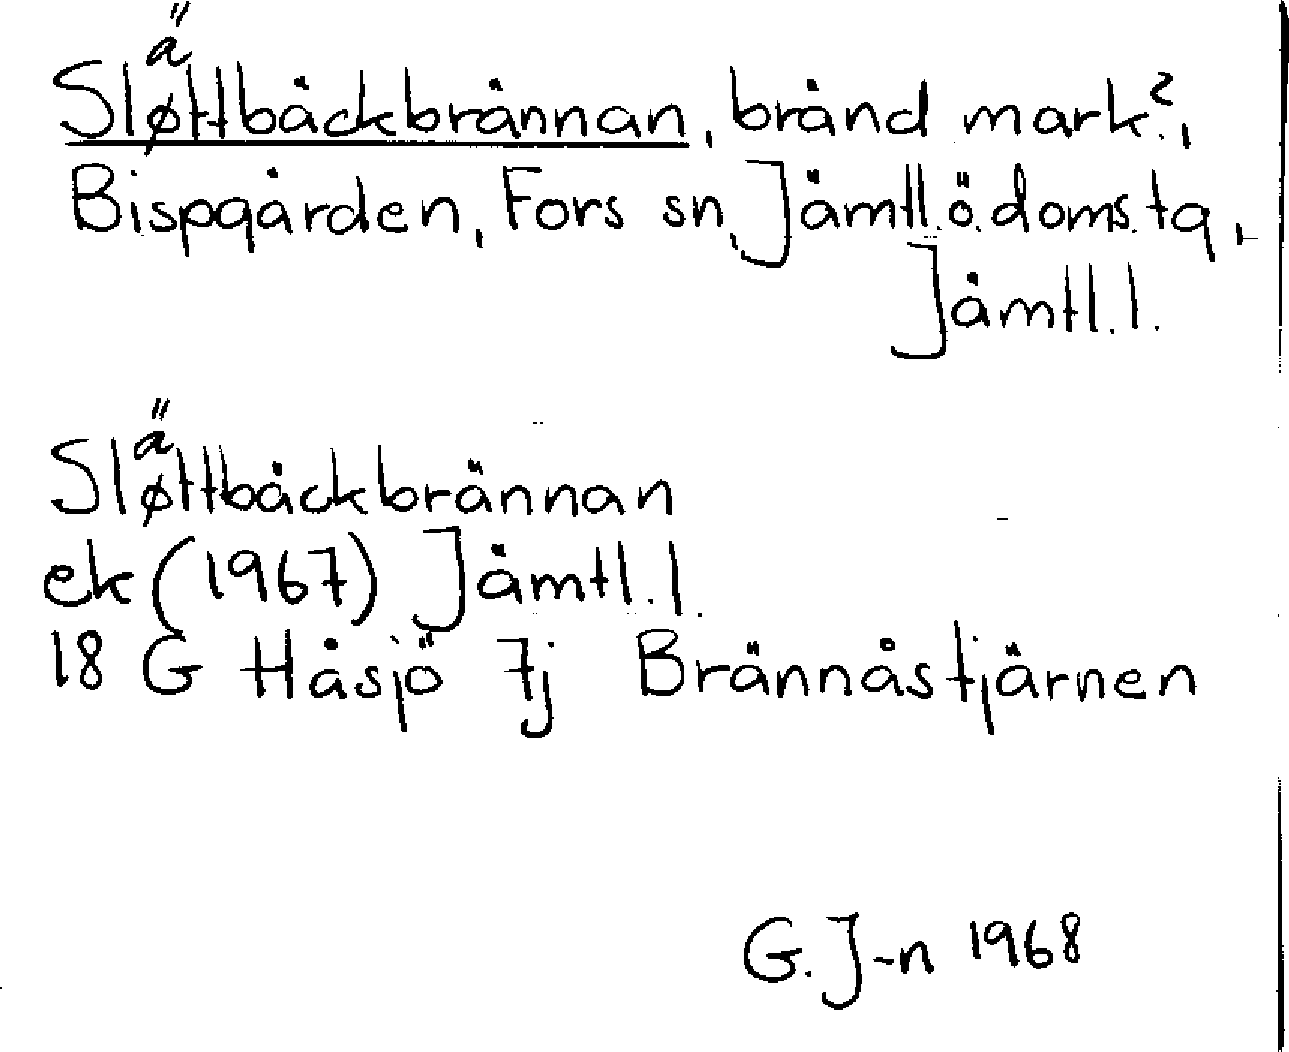 Slättbäckbrännan, bränd mark?,
Bispgården, Fors sn, Jämtl. ö. doms. tg,
Jämtl. l.
Slättbäckbrännan
ek (1967) Jämtl. l.
18 G Håsjö 7j Brännåstjärnen
G. J-n 1968